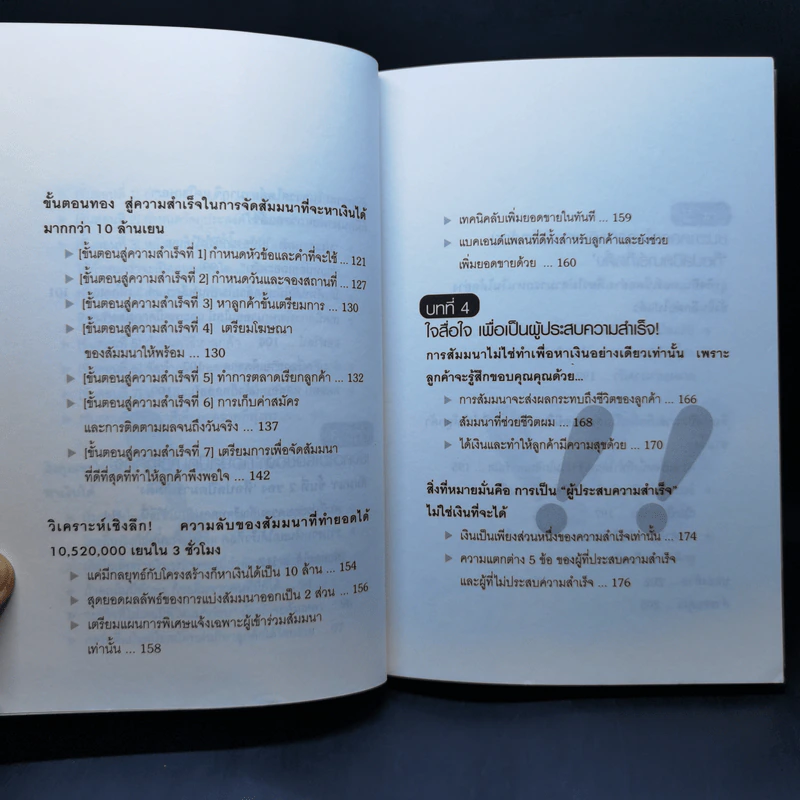 ขั้นตอนทอง สู่ความสำเร็จในการจัดสัมมนาที่จะหาเงินได้
มากกว่า 10 ล้านเยน
▶ [ขั้นตอนสู่ความสำเร็จที่ 1] กำหนดหัวข้อและคำที่จะใช้ ... 121
▶ [ขั้นตอนสู่ความสำเร็จที่ 2] กำหนดวันและจองสถานที่ ... 127
▶ [ขั้นตอนสู่ความสำเร็จที่ 3] หาลูกค้าขั้นเตรียมการ ... 130
▶ [ขั้นตอนสู่ความสำเร็จที่ 4] เตรียมโฆษณา
ของสัมมนาให้พร้อม ... 130
▶ [ขั้นตอนสู่ความสำเร็จที่ 5] ทำการตลาดเรียกลูกค้า ... 132
▶ [ขั้นตอนสู่ความสำเร็จที่ 6] การเก็บค่าสมัคร
และการติดตามผลจนถึงวันจริง ... 137
▶ [ขั้นตอนสู่ความสำเร็จที่ 7] เตรียมการเพื่อจัดสัมมนา
ที่ดีที่สุดที่ทำให้ลูกค้าพึงพอใจ ... 142
วิเคราะห์เชิงลึก! ความลับของสัมมนาที่ทำยอดได้
10,520,000 เยนใน 3 ชั่วโมง
▶ แค่มีกลยุทธ์กับโครงสร้างก็หาเงินได้เป็น 10 ล้าน ... 154
▶ สุดยอดผลลัพธ์ของการแบ่งสัมมนาออกเป็น 2 ส่วน ... 156
▶ เตรียมแผนการพิเศษแจ้งเฉพาะผู้เข้าร่วมสัมมนา
เท่านั้น ... 158
▶ เทคนิคลับเพิ่มยอดขายในทันที ... 159
▶ แบคเอนด์แพลนที่ดีทั้งสำหรับลูกค้าและยังช่วย
เพิ่มยอดขายด้วย ... 160
บทที่ 4
ใจสื่อใจ เพื่อเป็นผู้ประสบความสำเร็จ!
การสัมมนาไม่ใช่ทำเพื่อหาเงินอย่างเดียวเท่านั้น เพราะ
ลูกค้าจะรู้สึกขอบคุณคุณด้วย...
▶ การสัมมนาจะส่งผลกระทบถึงชีวิตของลูกค้า ... 166
▶ สัมมนาที่ช่วยชีวิตผม ... 168
▶ ได้เงินและทำให้ลูกค้ามีความสุขด้วย ... 170
สิ่งที่หมายมั่นคือ การเป็น “ผู้ประสบความสำเร็จ”
ไม่ใช่เงินที่จะได้
▶ เงินเป็นเพียงส่วนหนึ่งของความสำเร็จเท่านั้น ... 174
▶ ความแตกต่าง 5 ข้อ ของผู้ที่ประสบความสำเร็จ
และผู้ที่ไม่ประสบความสำเร็จ ... 176